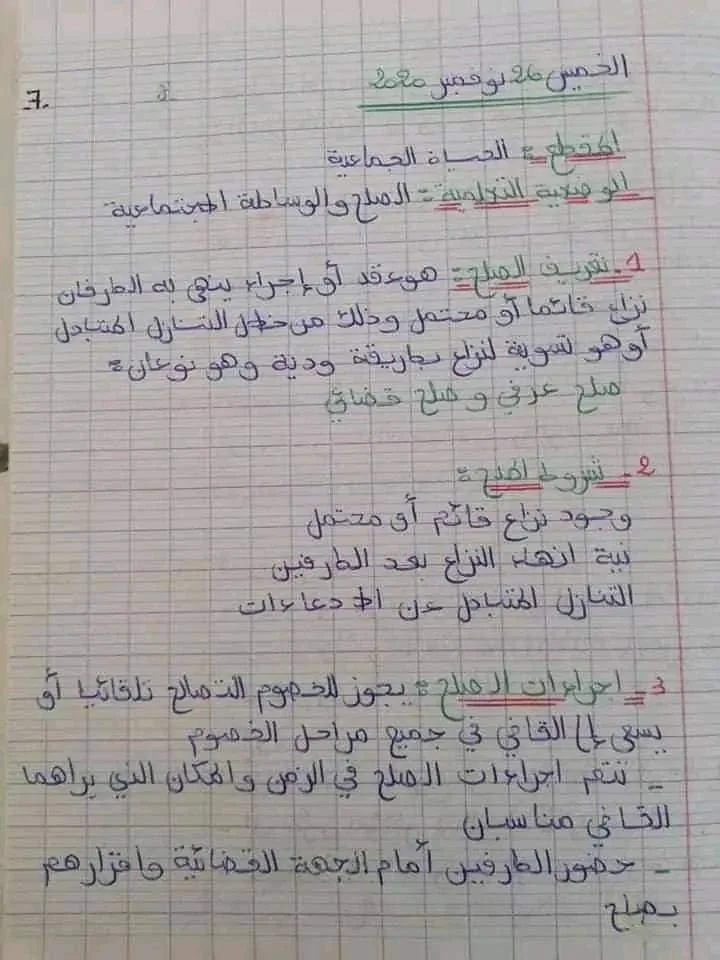 الخميس 26 نوفمبر 2020
7.
المقطع = الحياة الجماعية
الوضعية التعلمية = الصلح والوساطة الاجتماعية
1- تعريف الصلح = هو عقد أو إجراء ينهي به الطرفان
نزاع قائما أو محتمل وذلك من خلال التنازل المتبادل
أو هو تسوية لنزاع بطريقة ودية وهو نوعان =
صلح عرفي وصلح قضائي
2- شروط الصلح =
وجود نزاع قائم أو محتمل
نية انهاء النزاع بعد الطرفين
التنازل المتبادل عن الادعاءات
3- اجراءات الصلح = يجوز للخصوم التصالح تلقائيا أو
يسعى القاضي في جميع مراحل الخصوم
- تتم اجراءات الصلح في الزمن والمكان الذي يراهما
القاضي مناسبان
- حضور الطرفين أمام الجهة القضائية واقرارهم
بصلح